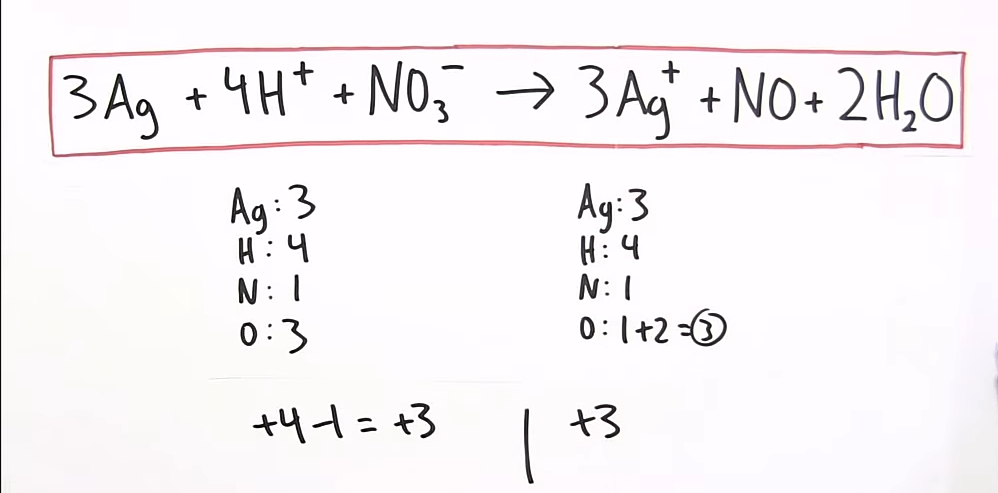 3Ag + 4H⁺ + NO₃⁻ → 3Ag⁺ + NO + 2H₂O
Ag: 3
H: 4
N: 1
O: 3
Ag: 3
H: 4
N: 1
O: 1+2 = 3
+4-1 = +3 | +3